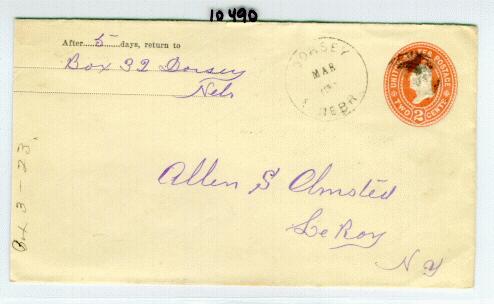 10490
After 5 days, return to
Box 32 Dorsey
Nebr
DORSEY
MAR
NEBR
UNITED STATES POSTAGE
TWO 2 CENTS
Allen S Olmsted
Le Roy
N Y
Box 3-23.